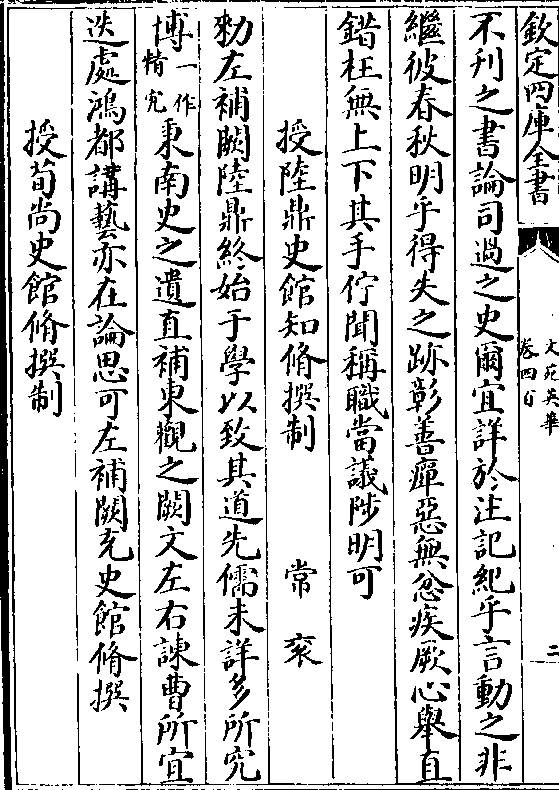 欽定四庫全書
文苑英華
卷四百
二
不刋之書論司過之史爾宜詳於注記紀乎言動之非
繼彼春秋明乎得失之跡彰善癉惡無忿疾厥心舉直
錯枉無上下其手佇聞稱職當議陟明可
授陸鼎史館知脩撰制 常衮
勅左補闕陸鼎終始于學以致其道先儒未詳多所究
博一作精究秉南史之遺直補東觀之闕文左右諫曹所宜
迭處鴻都講藝亦在論思可左補闕充史館脩撰
授荀尚史館脩撰制